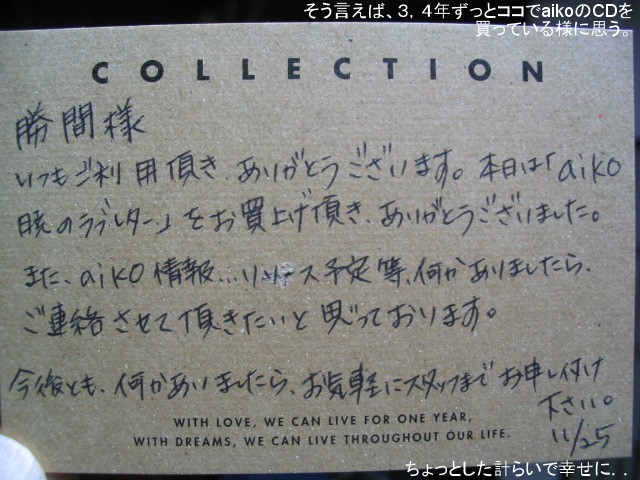 そう言えば、3，4年ずっとココでaikoのCDを
買っている様に思う。
COLLECTION
勝間様
いつもご利用頂き、ありがとうございます。本日は「aiko
暁のラブレター」をお買上げ頂き、ありがとうございました。
また、aiko情報…リリース予定等、何かありましたら、
ご連絡させて頂きたいと思っております。
今後とも、何かありましたら、お気軽にスタッフまでお申し付け
下さい。
WITH LOVE, WE CAN LIVE FOR ONE YEAR,
WITH DREAMS, WE CAN LIVE THROUGHOUT OUR LIFE.
11/25
ちょっとした計らいで幸せに．．